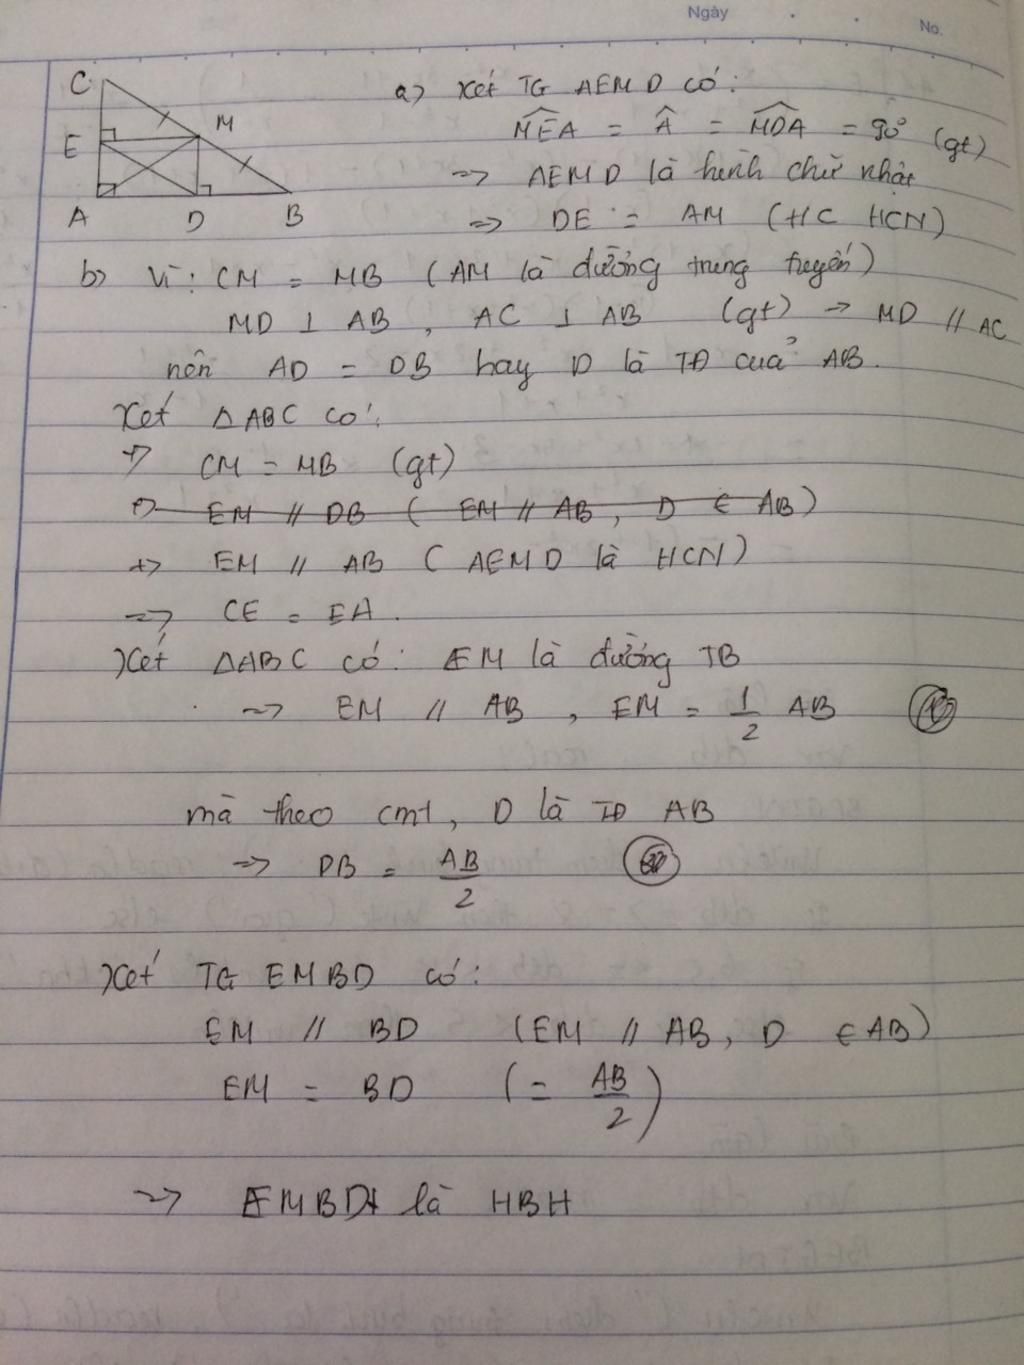 Ngày
No.
C
E
M
A
D
B
a) Xét TG AEMD có:
MEA = Â = MDA = 90° (gt)
=> AEMD là hình chữ nhật
=> DE = AM (HC HCN)
b) Vì: CM = MB (AM là đường trung tuyến)
MD ⊥ AB, AC ⊥ AB (gt) -> MD // AC
nên AD = DB hay D là TĐ của AB.
Xét ΔABC có:
+> CM = MB (gt)
+> EM // DB ( EM // AB, D ∈ AB)
+> EM // AB ( AEMD là HCN)
=> CE = EA.
Xét ΔABC có: EM là đường TB
=> EM // AB, EM = 1/2 AB
mà theo cmt, D là TĐ AB
=> DB = AB/2
Xét TG EMBD có:
EM // BD (EM // AB, D ∈ AB)
EM = BD (= AB/2)
=> EMBD là HBH